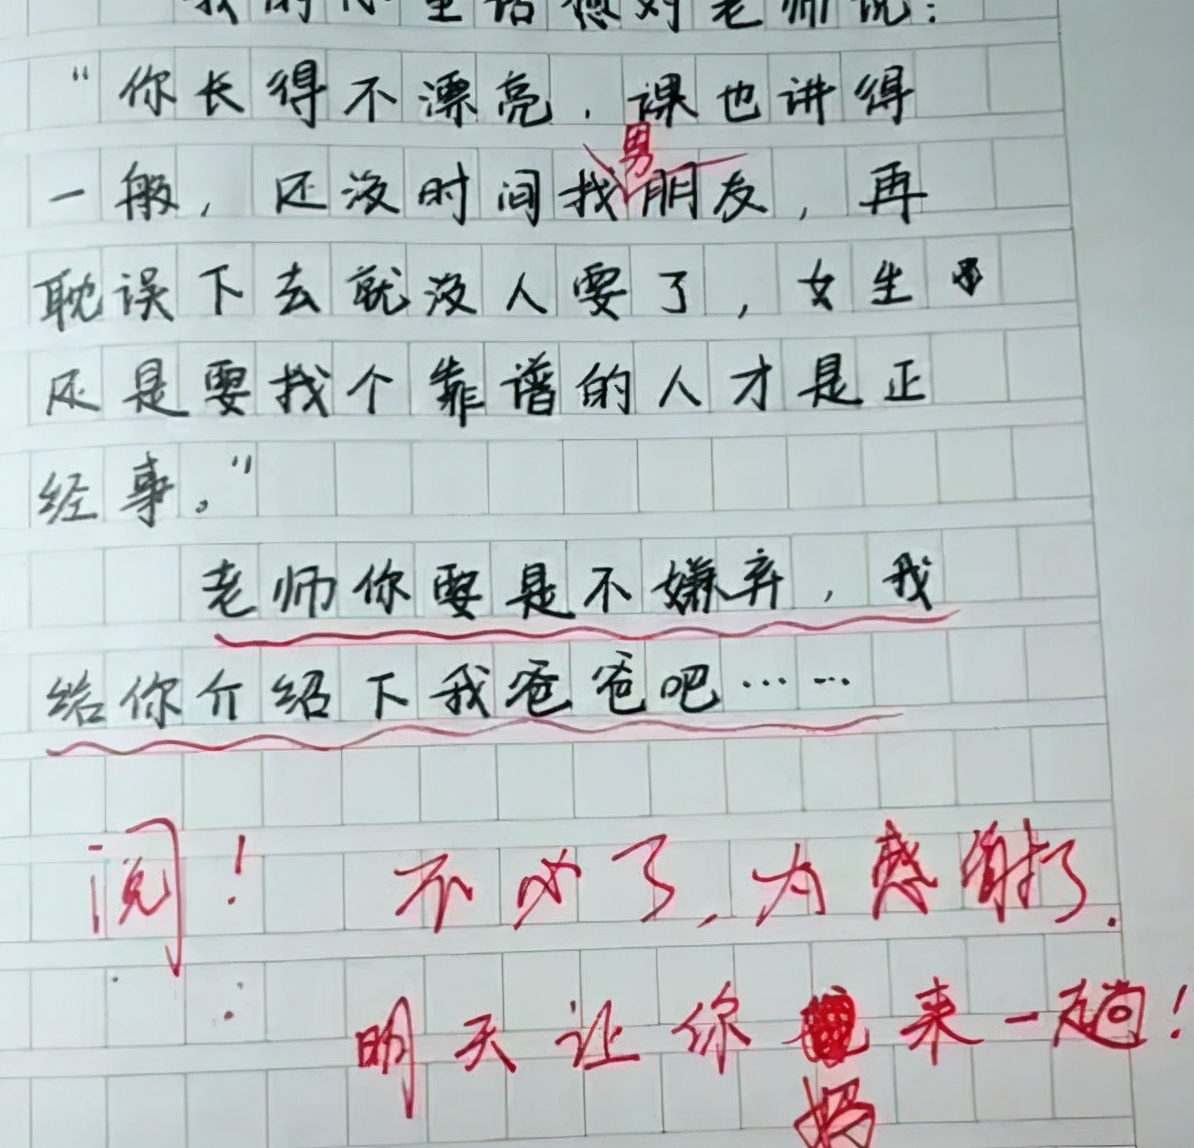 我的心里话想对老师说：
“你长得不漂亮，课也讲得
一般，还没时间找男朋友，再
耽误下去就没人要了，女生
还是要找个靠谱的人才是正
经事。”
老师你要是不嫌弃，我
给你介绍下我爸爸吧……
阅！ 不必了，为感谢了.
明天让你妈来一趟！